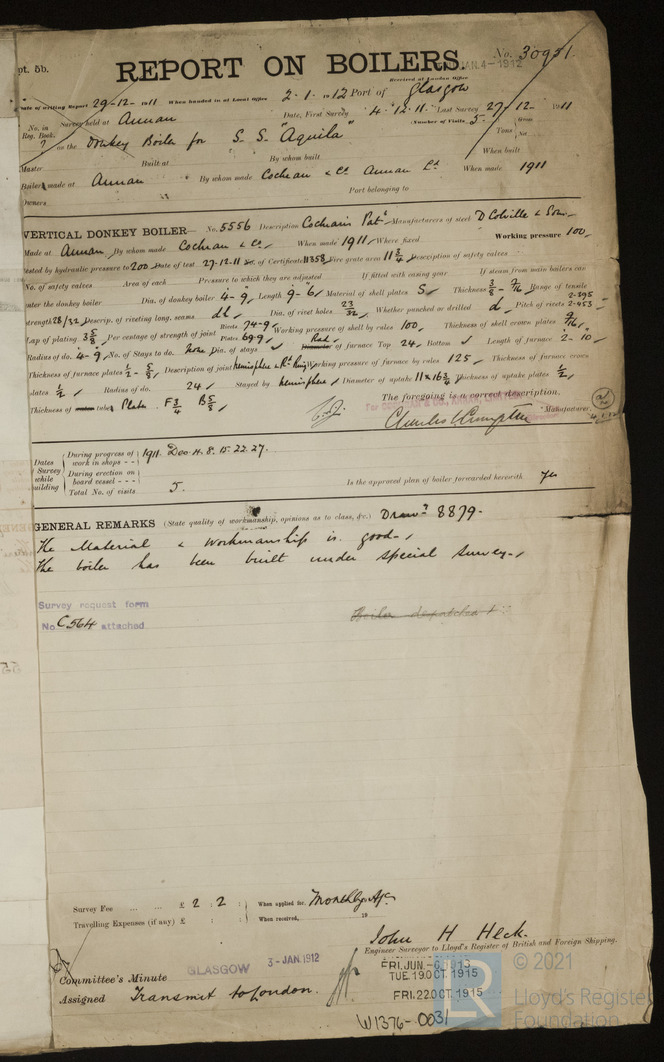 pt. 5b.
REPORT ON BOILERS.
No. 30951.
JAN. 4 - 1912
Received at London Office
Date of writing Report 29-12-1911 When handed in at Local Office 2.1.1912 Port of Glasgow
No. in Reg. Book. Survey held at Annan Date, First Survey 4.12.11. Last Survey 27-12-1911
(Number of Visits 5.
on the Donkey Boiler for S.S. "Aquila" Tons Gross Net
Master Built at By whom built When built
Boilers made at Annan By whom made Cochran & Co. Annan Ld When made 1911
Owners Port belonging to
VERTICAL DONKEY BOILER No. 5556 Description Cochran's Patt Manufacturers of steel D Colville & Sons
Made at Annan By whom made Cochran & Co. When made 1911 Where fixed Working pressure 100
tested by hydraulic pressure to 200 Date of test 27.12.11 No. of Certificate 11358 Fire grate area 11 3/4 Description of safety valves
No. of safety valves Area of each Pressure to which they are adjusted If fitted with easing gear If steam from main boilers can
enter the donkey boiler Dia. of donkey boiler 4-9 Length 9-6 Material of shell plates S Thickness 3/8 - 7/16 Range of tensile
strength 28/32 Descrip. of riveting long. seams dl Dia. of rivet holes 23/32 Whether punched or drilled d Pitch of rivets 2.395 2.453
Lap of plating 3 5/8 Per centage of strength of joint Rivets 74.9 Plates 69.9 Working pressure of shell by rules 100 Thickness of shell crown plates 9/16
Radius of do. 4-9 No. of Stays to do. None Dia. of stays Rad. Diameter of furnace Top 24 Bottom Length of furnace 2-10
Thickness of furnace plates 1/2 - 5/8 Description of joint Hemisphere & Rd Ring Working pressure of furnace by rules 125 Thickness of furnace crown
plates 1/2 Radius of do. 24 Stayed by hemisphere Diameter of uptake 11 x 16 3/4 Thickness of uptake plates 1/2
Thickness of water tubes Plates F 3/4 B 5/8
The foregoing is a correct description,
Charles Crompton Manufacturer.
Dates of Survey while building
During progress of work in shops - - 1911. Dec. 4. 8. 15. 22. 27.
During erection on board vessel - - -
Total No. of visits 5. Is the approved plan of boiler forwarded herewith Yes
GENERAL REMARKS (State quality of workmanship, opinions as to class, &c.) Drawg 8879.
The Material & Workmanship is good.
The boiler has been built under special survey.
Survey request form
No. C564 attached
Boiler despatched to
Survey Fee ... ... £ 2 : 2 : When applied for, Monthly A/c
Travelling Expenses (if any) £ : : When received, 19
John H Heck.
Engineer Surveyor to Lloyd's Register of British and Foreign Shipping.
Committee's Minute GLASGOW 3-JAN. 1912
FRI. JUN - 6 1913
TUE. 19 OCT. 1915
FRI. 22 OCT. 1915
Assigned Transmit to London.
W1376-0031
LR
© 2021
Lloyd's Register
Foundation